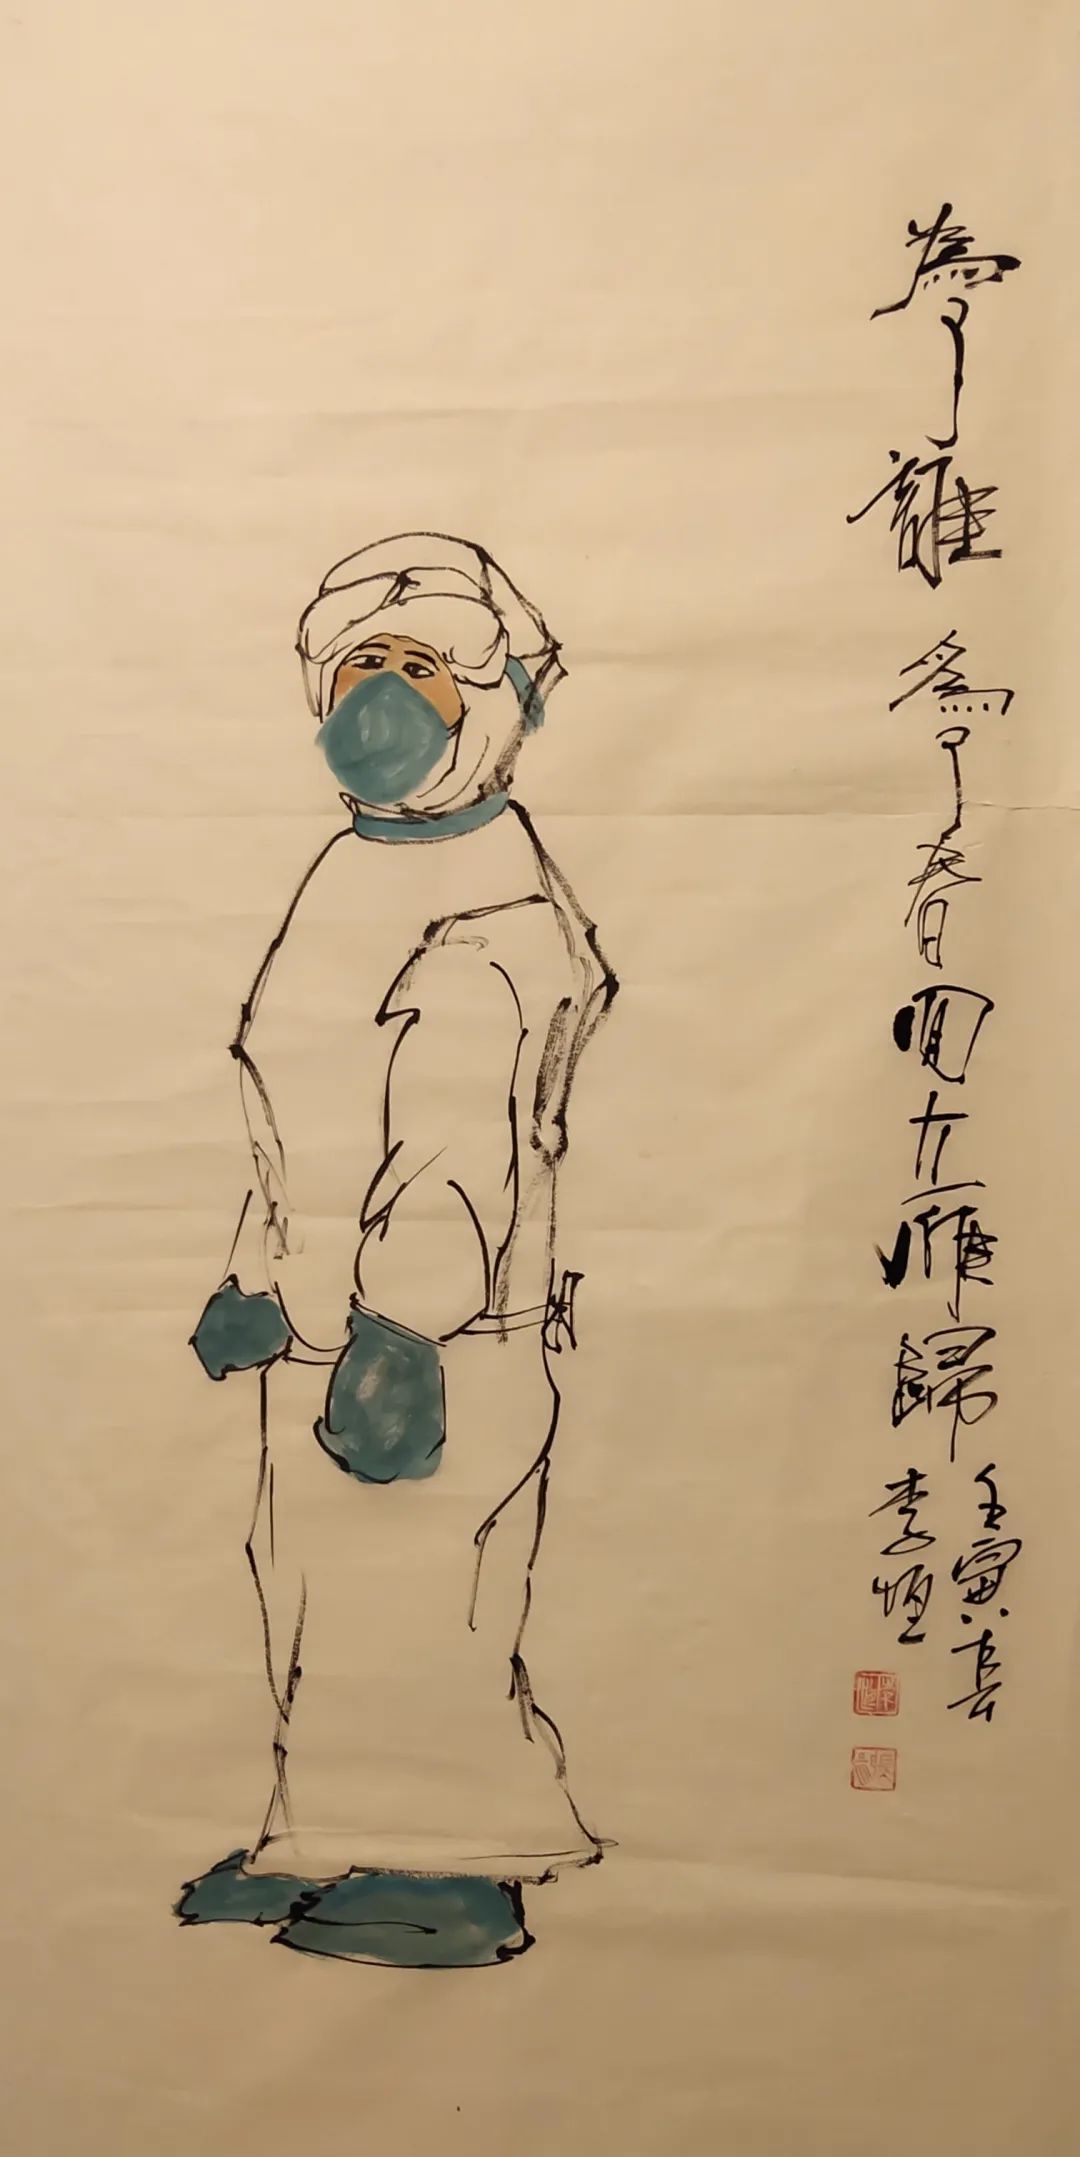 為了誰 為了春回大雁歸
壬寅
李恒